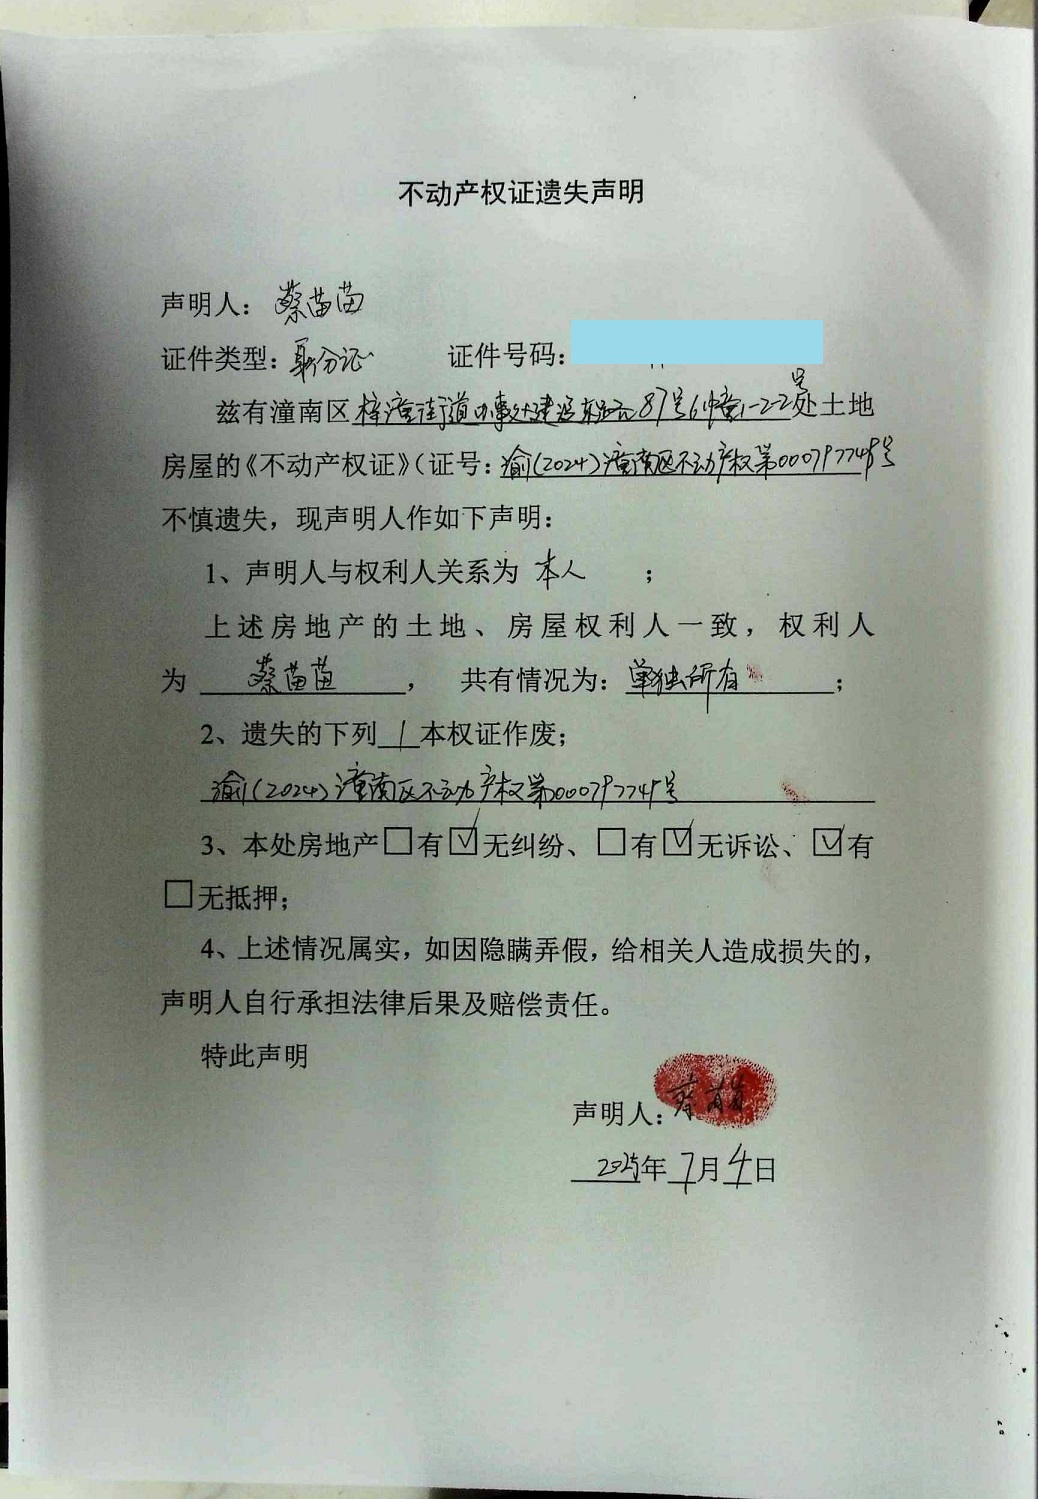 不动产权证遗失声明
声明人：蔡苗苗
证件类型：身份证 证件号码：
号
兹有潼南区梓潼街道办事处建设东路87号6幢1-2-2处土地
房屋的《不动产权证》（证号：渝(2024)潼南区不动产权第000797745号
不慎遗失，现声明人作如下声明：
1、声明人与权利人关系为 本人 ；
上述房地产的土地、房屋权利人一致，权利人
为 蔡苗苗 ， 共有情况为：单独所有 ；
2、遗失的下列 1 本权证作废；
渝(2024)潼南区不动产权第000797745号
3、本处房地产□有☑无纠纷、□有☑无诉讼、☑有
□无抵押；
4、上述情况属实，如因隐瞒弄假，给相关人造成损失的，
声明人自行承担法律后果及赔偿责任。
特此声明
声明人：蔡苗苗
2025年7月4日